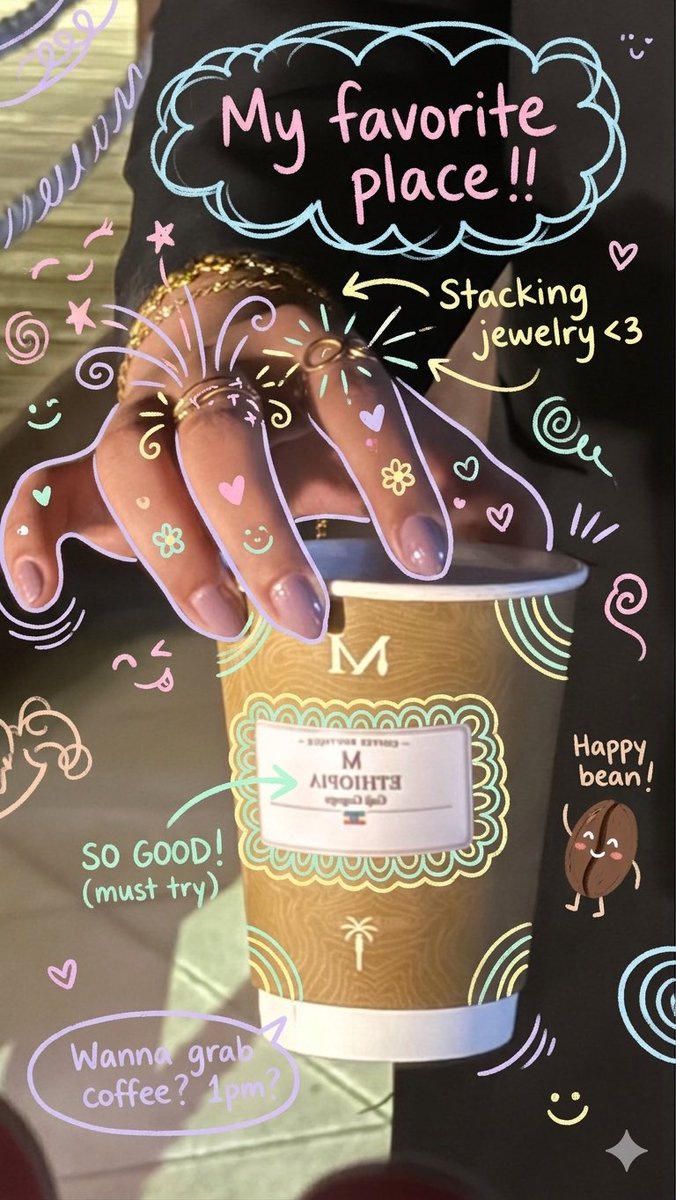 My favorite
place!!
Stacking
jewelry <3
M
— COFFEE BOUTIQUE —
M
ETHIOPIA
Guji Gogogu
SO GOOD!
(must try)
Happy
bean!
Wanna grab
coffee? 1pm?